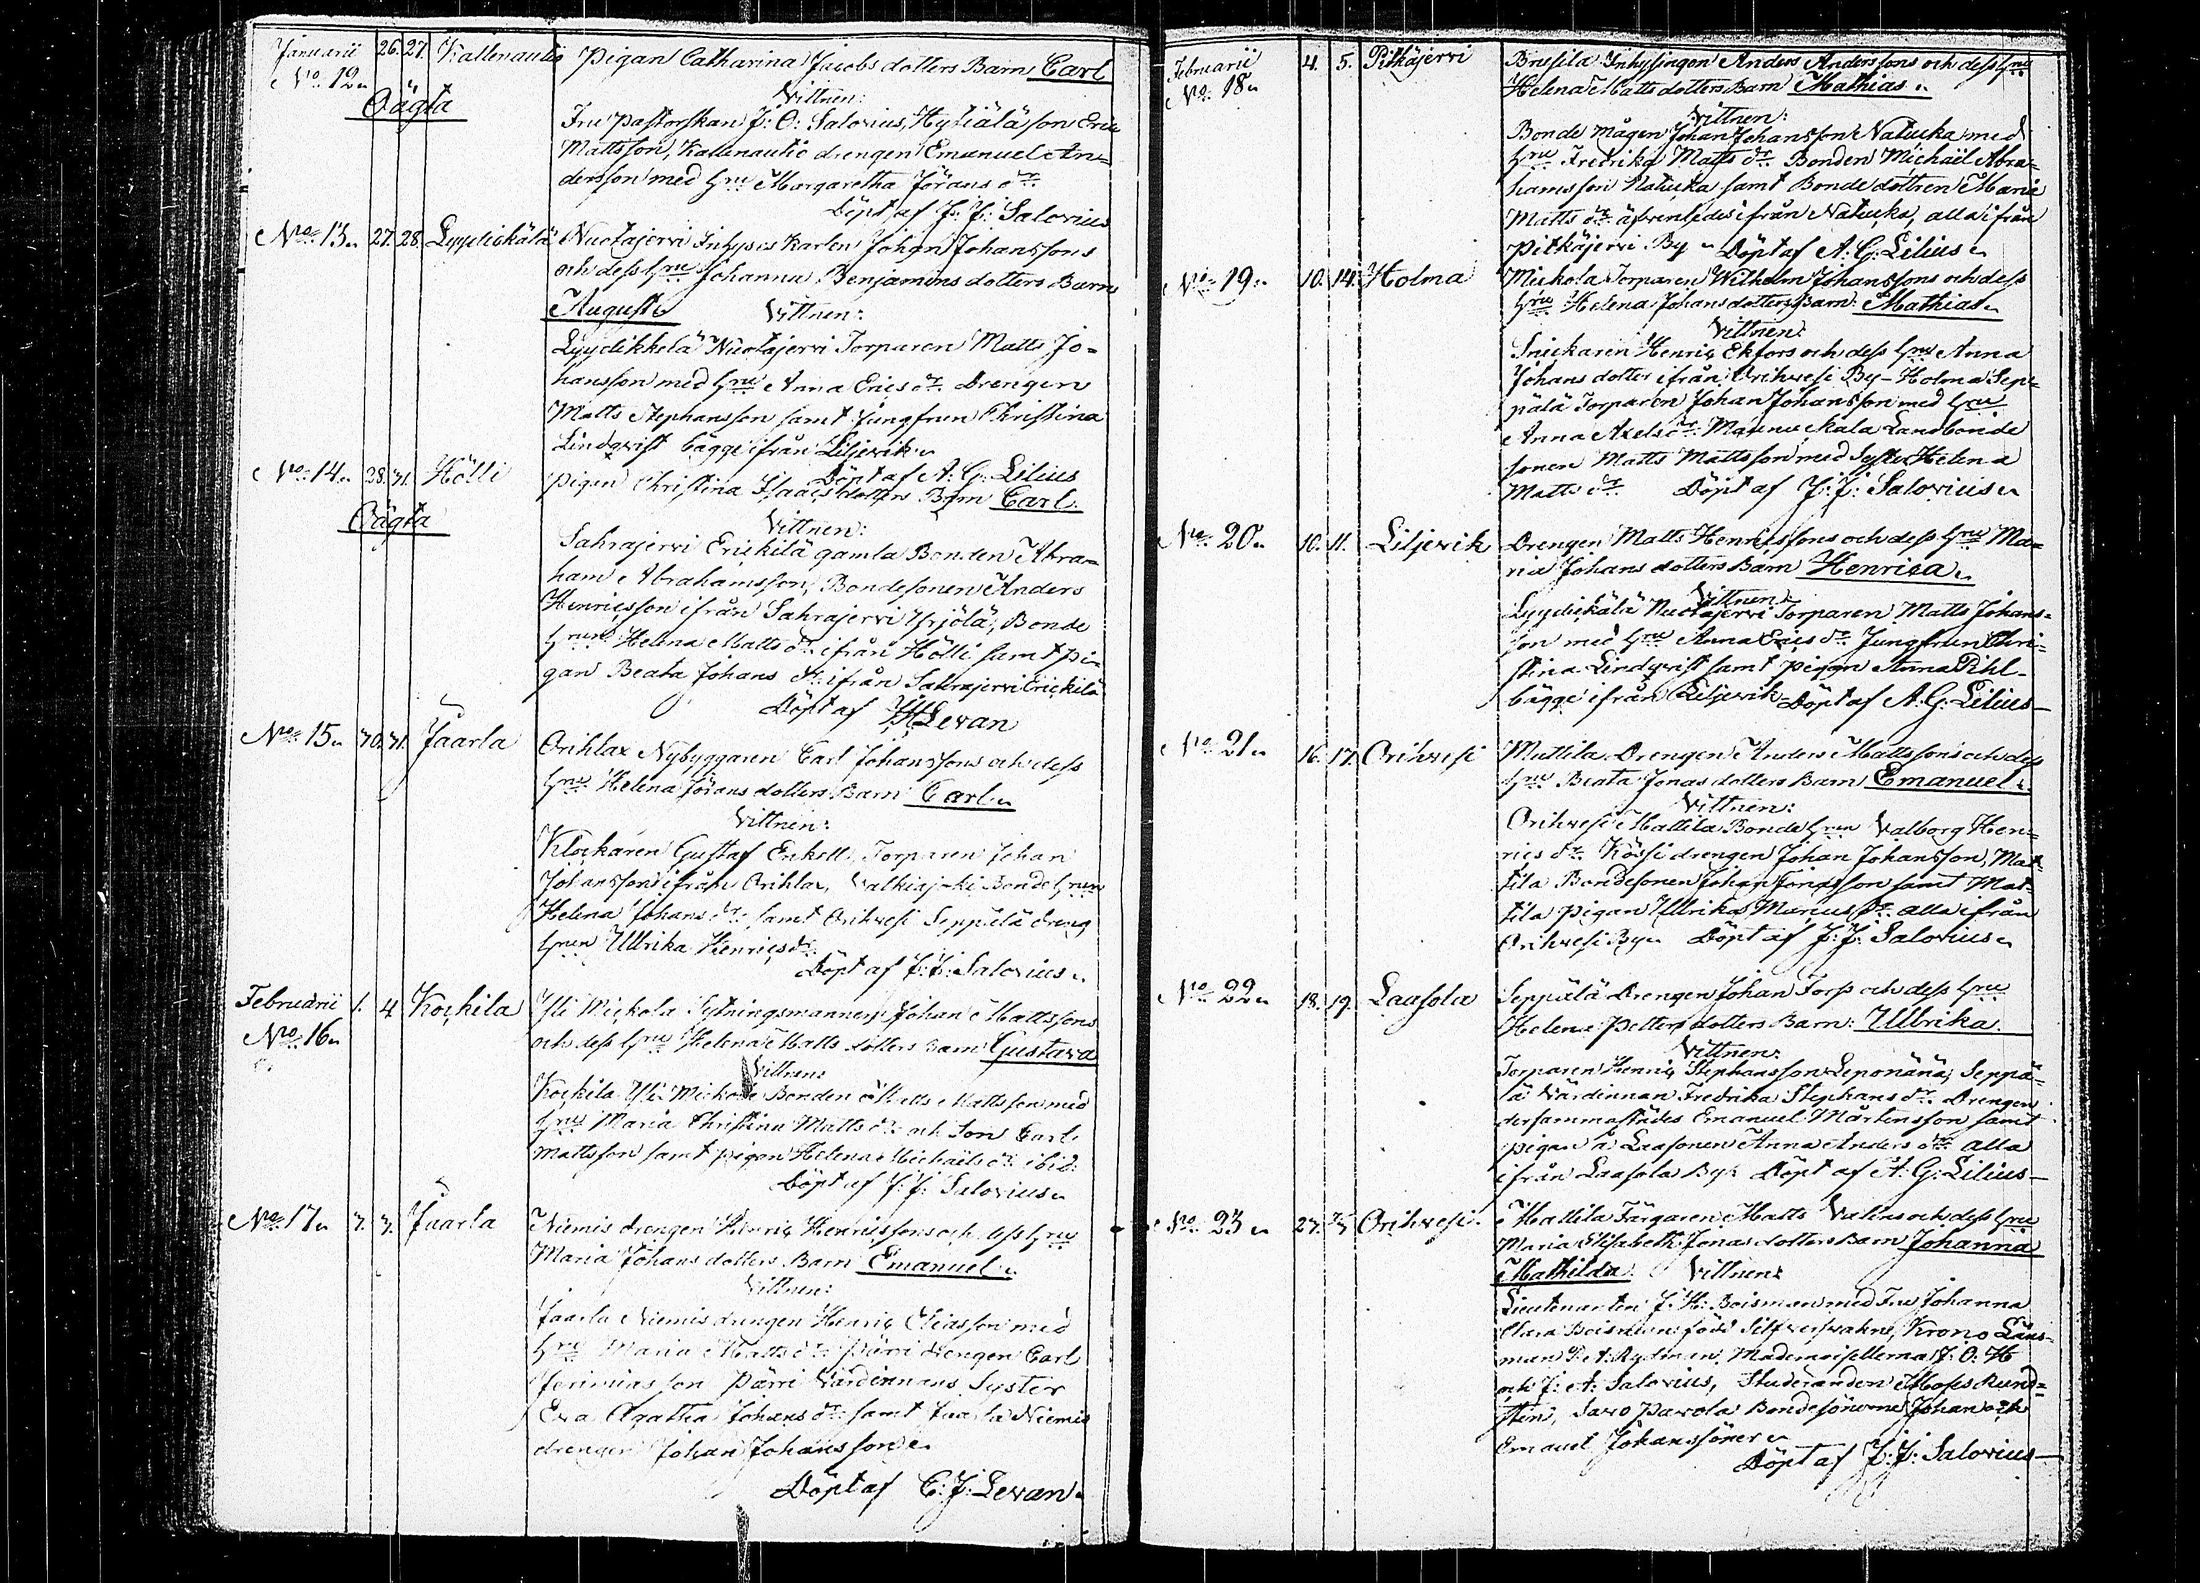 Januarii 26. 27. Kallenautio Pigan Catharina Jacobs dotters Barn Carl
No 12
Oägta
Vittnen:
Fru Pastorskan J: O: Salovius, Hytiälä son Eric
Mattsson, Kallenautio drengen Emanuel An=
dersson med Hru Margaretha Jörans dr
Döpt af J: J: Salovius
No 13 27. 28. Lyydickälä Nuotajervi Inhyses Karlen Johan Johanssons
och dess Hru Johanna Benjamins dotters Barn
August Vittnen:
Lyydikkelä Nuotajervi Torparen Matts Jo=
hansson med Hru Anna Erics dr Drengen
Matts Stephansson samt Jungfrun Christina
Lindqvist bägge ifrån Liljevik
Döpt af A: G: Lilius
No 14 28. 31. Hölli Pigan Christina Isaacs dotters Barn Carl.
Oägta
Vittnen:
Sahrajervi Erickilä gamla Bonden Abra=
ham Abrahamsson, Bondesonen Anders
Henricsson ifrån Sahrajervi Yrjölä, Bonde
Hrun Helena Matts dr ifrån Hölli samt Pi=
gan Beata Johans dr ifrån Sahrajervi Erickilä
Döpt af Levan
No 15 30. 31. Jaarla Orihlax Nybyggaren Carl Johanssons och dess
Hru Helena Jörans dotters Barn Carl
Vittnen:
Klockaren Gustaf Enkell, Torparen Johan
Johansson ifrån Orihlax, Valkiajoki Bonde Hrun
Helena Johans dr samt Orihvesi Seppälä dreng
Hrun Ullrika Henrics dr
Döpt af J: J: Salovius
Februarii 1. 4 Kockila Yli Mickola Sytningsmannen Johan Mattssons
No 16
och dess Hru Helena Matts dotters Barn Gustava
Vittnen:
Kockila Yli Mickola Bonden Matts Mattsson med
Hru Maria Christina Matts dr och Son Carl
Mattsson samt pigan Helena Michaels dr ibid:
Döpt af J: J: Salovius
No 17 3. 3. Jaarla Niemis drengen Henric Henricssons och dess Hru
Maria Johans dotters Barn Emanuel
Vittnen:
Jaarla Niemis drengen Henric Eliasson med
Hru Maria Matts dr Pärri drengen Carl
Jerimiasson Pärri Värdinnans Syster
Eva Agatha Johans dr samt Jaarla Niemis
drengen Johan Johansson
Döpt af C: J: Levan
Februarii 4. 5. Pitkäjervi Inhysingen Anders Anderssons och dess Hru
No 18
Helena Matts dotters Barn Mathias
Vittnen:
Bonde mågen Johan Johansson Natucka med
Hru Fredrika Matts dr Bonden Michaël Abra=
hamsson Natucka samt Bonde dottren Maria
Matts dr äfvenledes ifrån Natucka, alla ifrån
Pitkäjervi By Döpt af A: G: Lilius
No 19 10. 14. Holma Mickola Torparen Wilhelm Johanssons och dess
Hru Helena Johans dotters Barn: Mathias
Vittnen:
Snickaren Henric Ekfors och dess Hru Anna
Johans dotter ifrån Orihvesi By - Holma Sep=
pälä Torparen Johan Johansson med Hru
Anna Axels dr Landbonde
sonen Matts Mattsson med Syster Helena
Matts dr Döpt af J: J: Salovius
No 20 10. 11. Liljevik Drengen Matts Henricssons och dess Hru Ma=
ria Johans dotters Barn Henrica
Vittnen:
Lyydickälä Nuotajervi Torparen Matts Johans=
son med Hru Anna Erics dr Jungfrun Chri=
stina Lindqvist samt pigan Anna Pihl-
bägge ifrån Liljevik Döpt af A: G: Lilius
No 21 16. 17. Orihvesi Mattila Drengen Anders Mattssons och dess
Hru Beata Jonas dotters Barn Emanuel
Vittnen:
Orihvesi Mattila Bonde Hrun Valborg Hen=
rics dr Kössi drengen Johan Johansson, Mat=
tila Bondesonen Johan Jonasson samt Mat=
tila pigan Ullrika Marcus dr alla ifrån
Orihvesi By Döpt af J: J: Salovius
No 22 18. 19. Laasola Seppälä Drengen Johan Forss och dess Hru
Helena Petters dotters Barn: Ullrika
Vittnen:
Torparen Henric Stephansson Leponänä, Seppä=
lä Värdinnan Fredrika Stephans dr Drengen
dersammastädes Emanuel Mårtensson samt
pigan å Laasonen Anna Anders dr alla
ifrån Laasola By Döpt af A: G: Lilius
No 23 27. Orihvesi Mattila Färgaren Matts Valens och dess Hru
Maria Elisabeth Jonas dotters Barn Johanna
Mathilda Vittnen:
Lieutenanten J. H: Boisman med Fru Johanna
Clara Boisman född Silfversvahn, Krono Läns=
man Rydman, Mademoisellerna J: O: H
och J: A: Salovius, Studeranden Moses Rund=
sten, Savo Pavola Bondesönerne Johan och
Emanuel Johanssöner
Döpt af J: J: Salovius